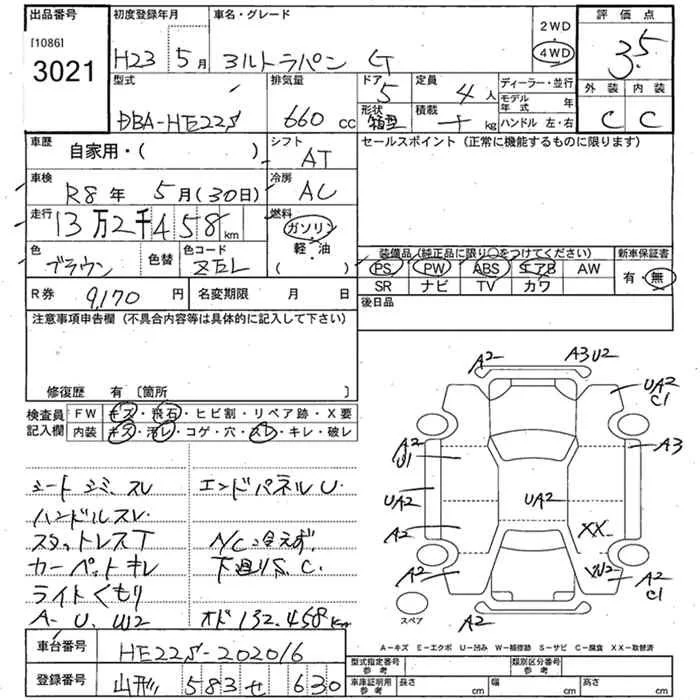 出品番号 初度登録年月 車名・グレード 評価点
[1086]
3021
H23 5月 ヨルトラパン G
2WD
4WD
3.5
型式 排気量 ドア 定員 ディーラー・並行
外装 内装
DBA-HE22S 660 cc 5 4人
モデル年式 年
形状 積載
箱型 kg
ハンドル 左・右
C C
車歴 シフト セールスポイント(正常に機能するものに限ります)
自家用・( ) AT
車検 冷房
R8年 5月(30日) AC
走行 燃料
13万2千458km ガソリン・軽・油( )
色 色替 色コード
ブラウン ZEL
装備品(純正品に限り○をつけてください) 新車保証書
PS PW ABS エアB AW
SR ナビ TV カワ
有・無
R券 9,170円 名変期限 月 日
後日品
注意事項申告欄(不具合内容等は具体的に記入して下さい)
修復歴 有〔箇所 〕
検査員記入欄
FW キズ・飛石・ヒビ割・リペア跡・X要
内装 キズ・汚レ・コゲ・穴・スレ・キレ・破レ
シートシミ、スレ エンドパネルU
ハンドルスレ
スタットレスT A/C冷えず
カーペットキレ 下廻りS、C
ライトくもり
A-U、W2 オド132,458km
A2 A3U2
UA2
C1
A2
U1
A3
UA2 UA2
A2 XX
A2 A2
C1
A2
スペア
A-キズ E-エクボ U-凹み W-補修跡 S-サビ C-腐食 XX-取替済
車台番号 HE22S-202016
登録番号 山形 583 せ 630
型式指定番号 参考 類別区分番号 参考
車庫証明用 参考 長さ cm 幅 cm 高さ cm